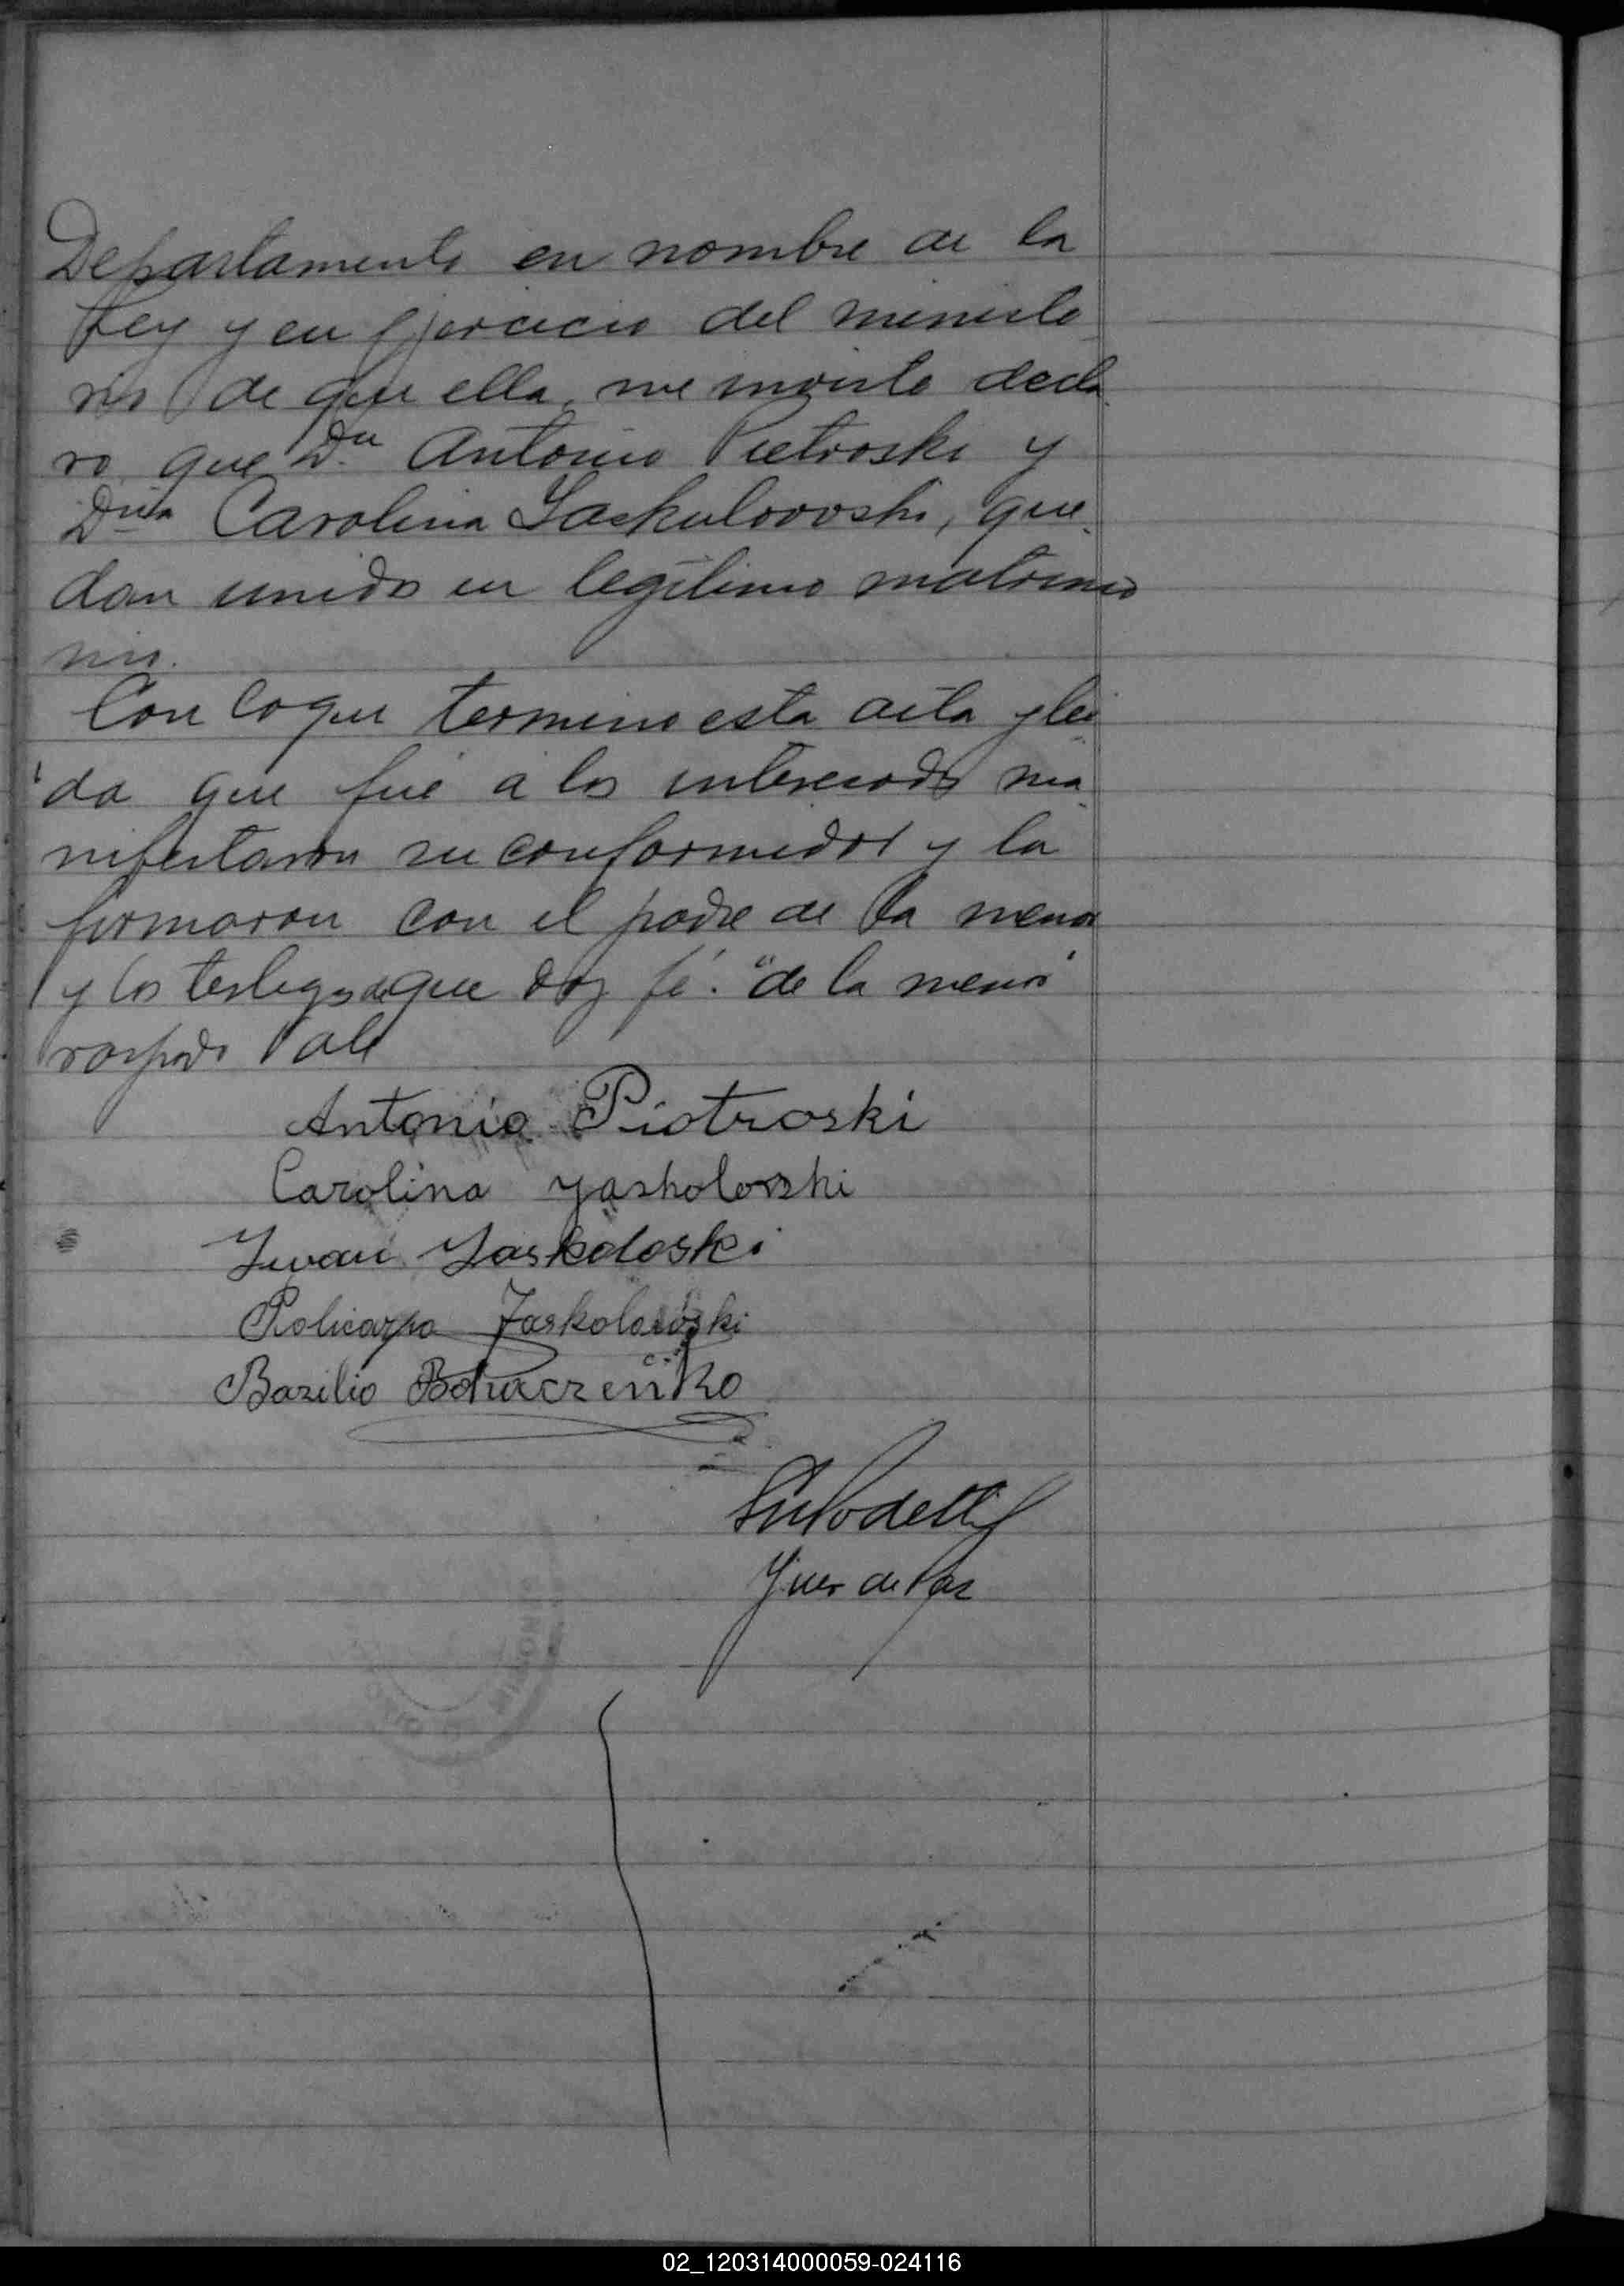 Departamento en nombre de la
Ley y en ejercicio del ministe
rio de que ella, me inviste decla
ro que Dn Antonio Pietroski y
Dña Carolina Yaskulowski, que
dan unidos en legitimo matrimo
nio.
Con lo que termino esta acta y lei
da que fué a los interesados ma
nifestaron su conformidad y la
firmaron con el padre de la menor
y los testigos de que doy fé. "de la menor"
raspado Vale
Antonio Piotroski
Carolina Yaskolowski
Iwan Jaskoloski
Policarpo Jaskolowski
Bazilio Bohaczeńko
Podetti
Juez de Paz
MISIONES
02_120314000059-024116